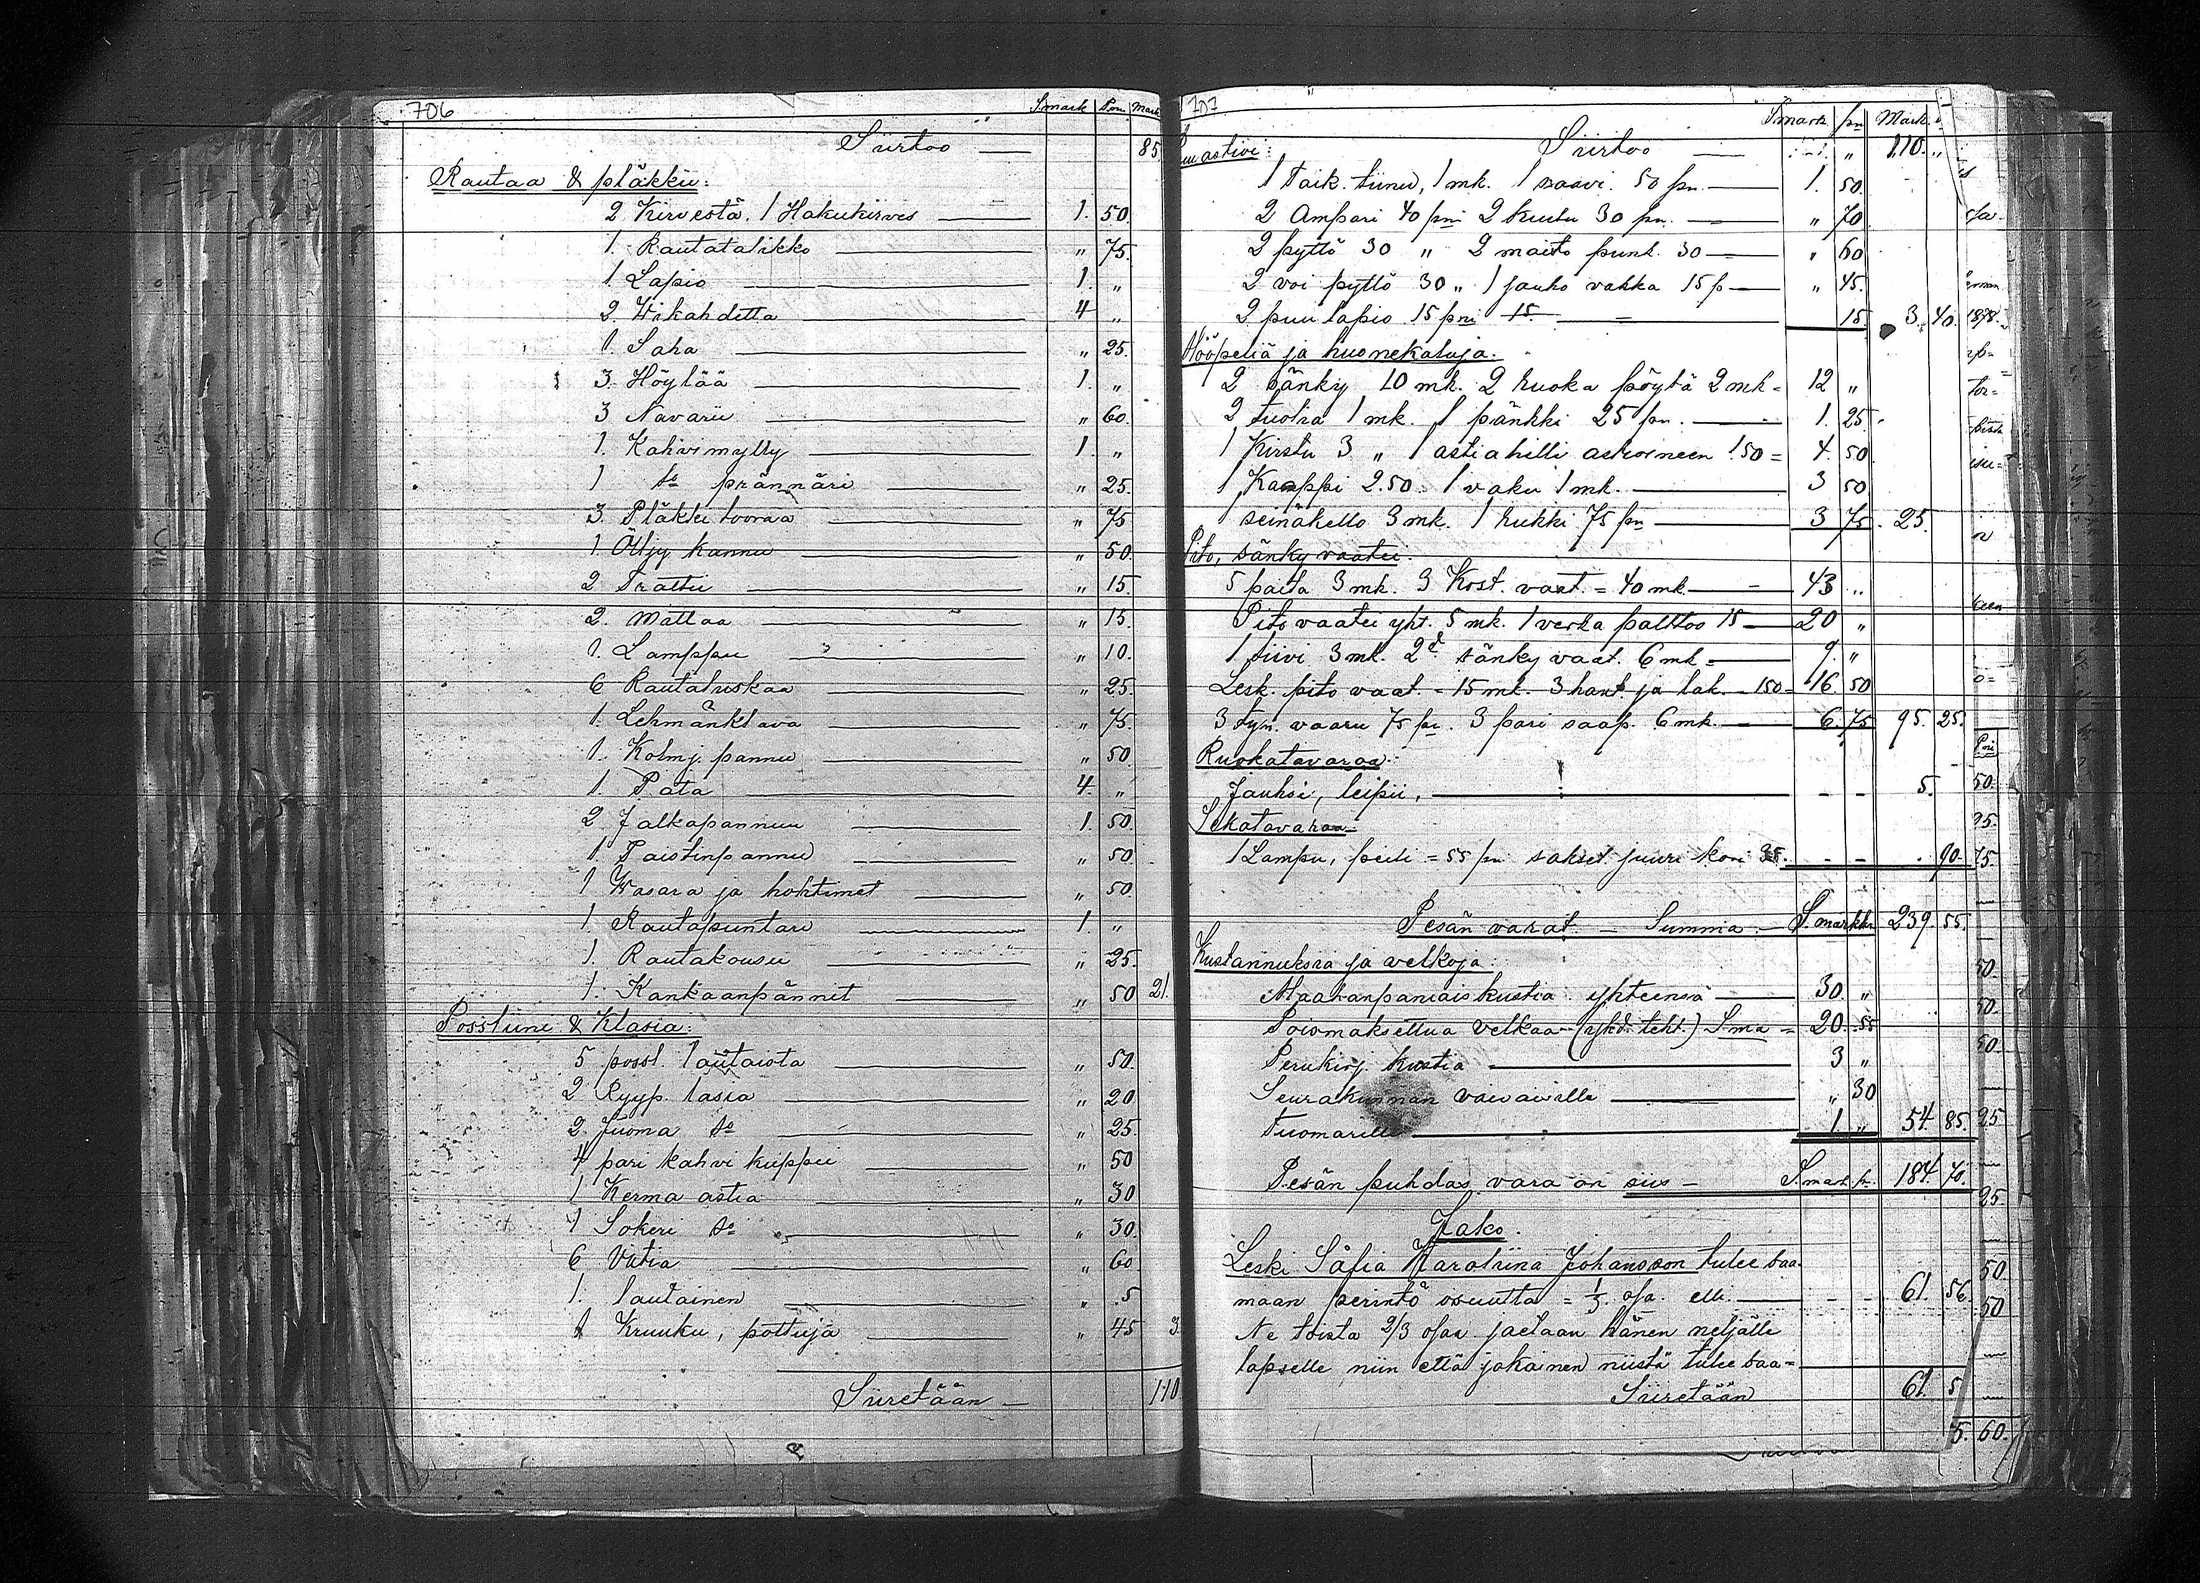 706
Smark Pni Mark
Siirtoo 85
Rautaa & pläkkii:
2 Kirvestä. 1 Hakukirves 1. 50.
1. Rautatalikko " 75.
1. Lapio 1. "
2. Wikahdetta 4 "
1. Saha " 25.
3. Höylää 1. "
3 Navarii " 60.
1. Kahvimylly 1. "
1 do prännäri " 25.
3. Pläkki tooraa " 75
1. Öljy kannu " 50.
2 Trattii " 15.
2. Mattaa " 15.
1. Lamppu " 10.
6 Rautaluskaa " 25.
1. Lehmänklava " 75.
1. Kolmj. pannu " 50
1. Pata 4. "
2 Jalkapannuu 1. 50.
1. Paistinpannu " 50.
1 Wasara ja hohtimet " 50.
1. Rautapuntari 1. "
1. Rautakousu " 25.
1. Kankaanpännit " 50 21.
Possliini & Klasia:
5 possl. lautaista " 50.
2 Ryyp. lasia " 20
2. Juoma do " 25.
4 pari kahvi kuppii " 50
1 Kerma astia " 30
1 Sokeri do " 30.
6 Vatia " 60
1. lautainen " 5
1 Kruuku, pottuja " 45 3.
Siiretään 110
707
Smark pni Mark
Puuastioi: Siirtoo " 110. "
1 taik. tiinu, 1 mk. 1 saavi. 50 pn. 1. 50.
2 Ampari 40 pni 2 kuulu 30 pn. " 70
2 pyttö 30 " 2 maito punt. 30 " 60
2 voi pyttö 30 " 1 jauho vakka 15 p " 45.
2 puu lapio 15 pni 15 15. 3. 40.
Möö̈peliä ja huonekaluja.
2 sänky 10 mk. 2 ruoka pöytä 2 mk = 12 "
2 tuolia 1 mk. 1 pänkki 25 pn. 1. 25.
1 Kirstu 3 " 1 astiahilli astioineen 1.50 = 4. 50.
1 Kaappi 2.50. 1 vaku 1 mk. 3 50
1 seinäkello 3 mk. 1 rukki 75 pn 3 75. 25.
Pito, sänky vaatei.
5 paita 3 mk. 3 Kost. vaat. = 40 mk. 43 "
Pito vaatei yht. 5 mk. 1 verka palttoo 15 20 "
1 liivi 3 mk. 2 sänky vaat. 6 mk = 9. "
Lesk. pito vaat. = 15 mk. 3 hant ja lak. - 150 = 16. 50
3 tyn. vaaru 75 pn. 3 pari saap. 6 mk. 6. 75 95. 25.
Ruokatavaraa:
Jauhoi, leipii, - - 5.
Sekatavaraa
1 Lampu, peili = 55 pn sakset. juuri kori 35. - - . 90
Pesän varat. - Summa - S. markka 239. 55.
Kustannuksia ja velkoja:
Maahanpaniaiskustia yhteensä 30. "
Poiomaksettua velkaa (yksi teht.) Sma = 20. 55
Perukirj. kustia 3 "
Seurakunnan vaivaisille " 30
Tuomarille 1 " 54. 85.
Pesän puhdas vara on siis - S. mark p. 184. 70.
Jako.
Leski Säfia Karoliina Johansson tulee saa-
maan perintö osuutta = 1/3. osa. eli - - 61. 56.
Ne toista 2/3 osaa jaetaan hänen neljälle
lapselle niin että jokainen niistä tulee saa=
Siiretään 61. 5